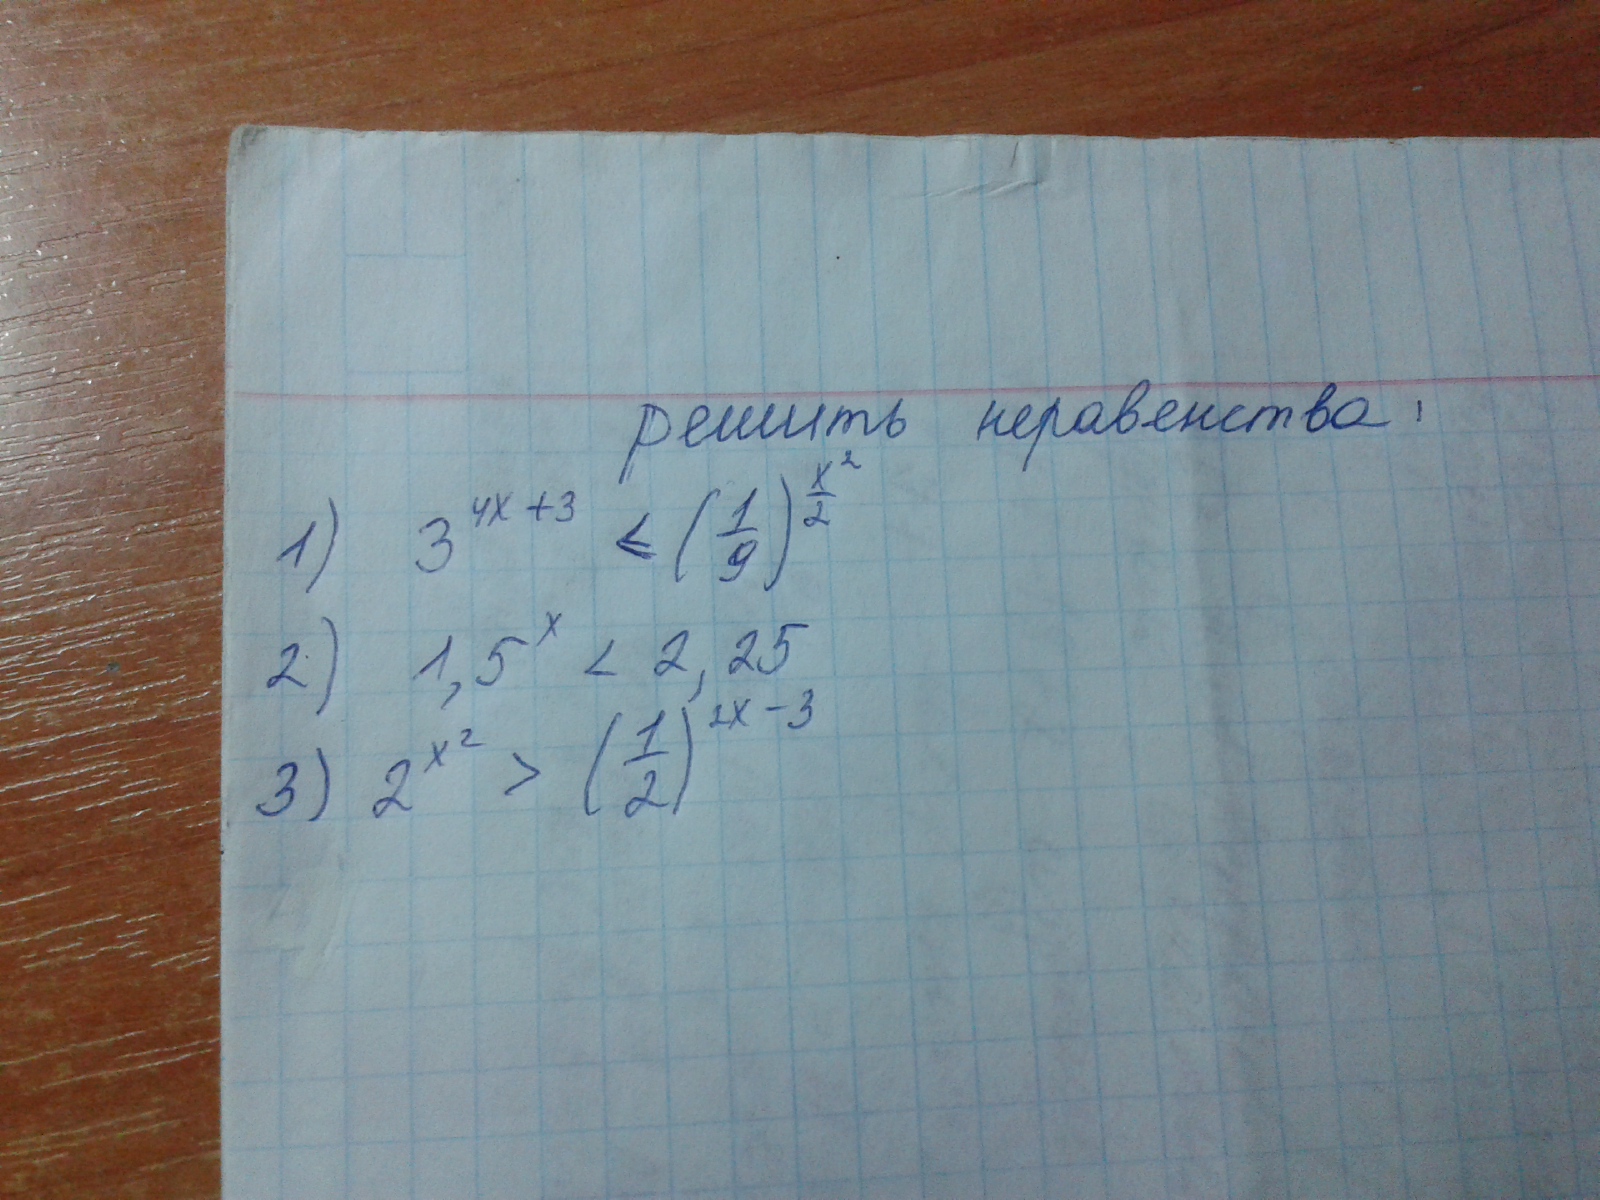 решить неравенства:
1) 3^{4x+3} ≤ (1/9)^{x²/2}
2) 1,5^x < 2,25
3) 2^{x²} > (1/2)^{2x-3}